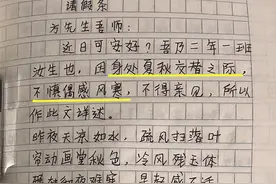 请假条
方先生吾师:
近日可安好?吾乃二年一班
汝生也,因身处夏秋交替之际,
不慎偶感风寒,不得亲见,所以
作此文详述。
昨夜天凉如水,疏风扫落叶
穷动画堂秋色,冷风残玉体